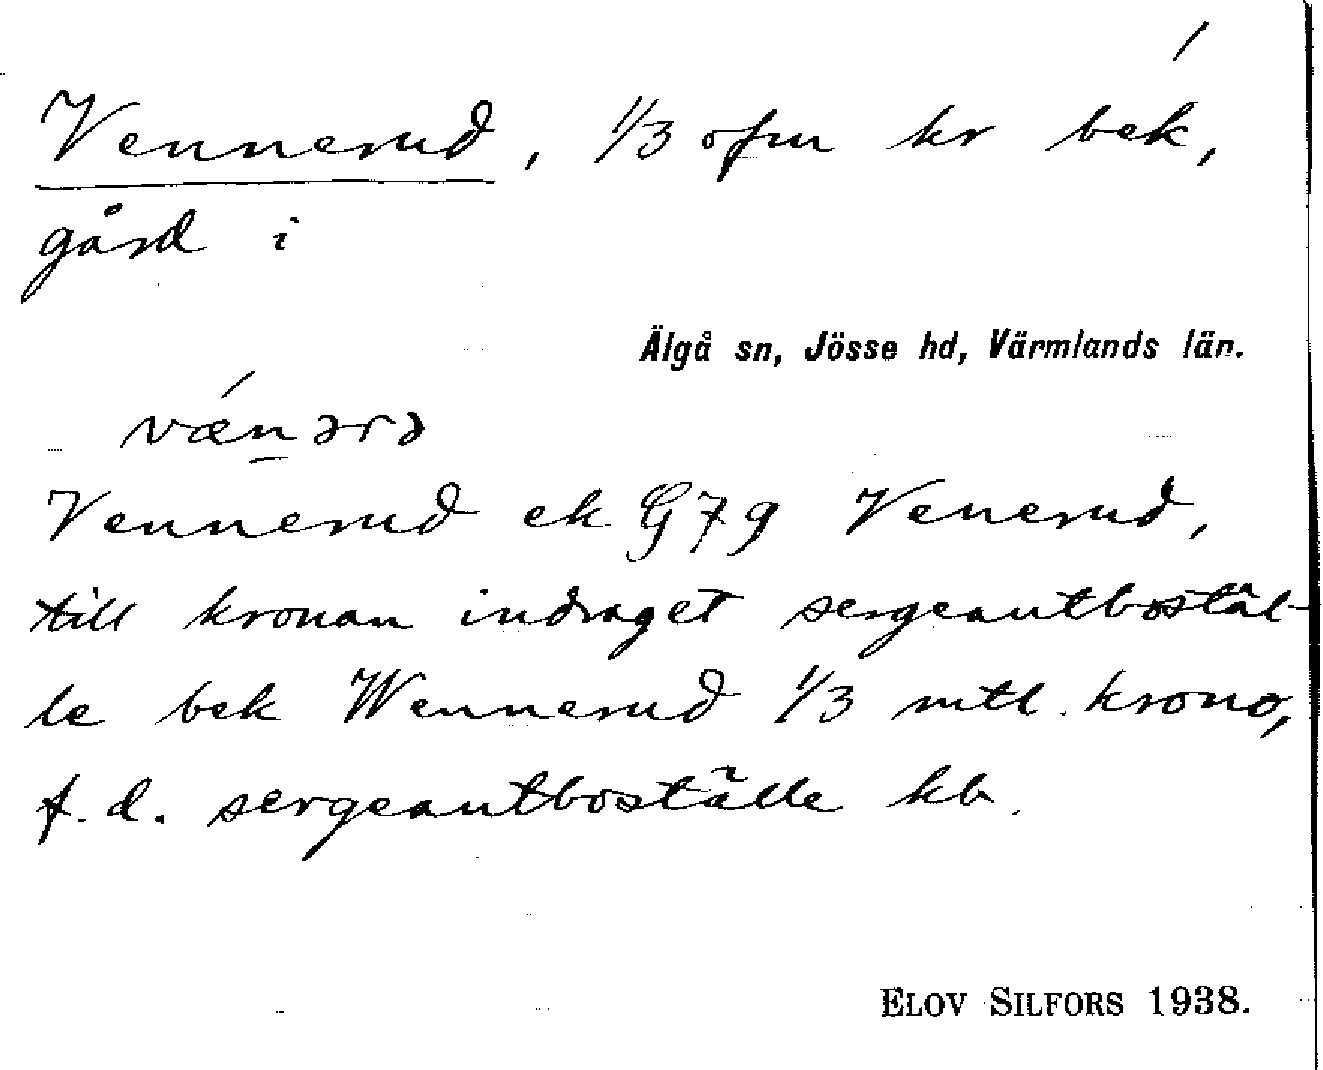 /
Vennerud, 1/3 ofm kr bek,
gård i
Älgå sn, Jösse hd, Värmlands län.
vǽn̲ərə
Vennerud ek G79 Venerud,
till kronan indraget sergeantbostäl-
le bek Wennerud 1/3 mtl. krono,
f.d. sergeantboställe kb.
ELOV SILFORS 1938.